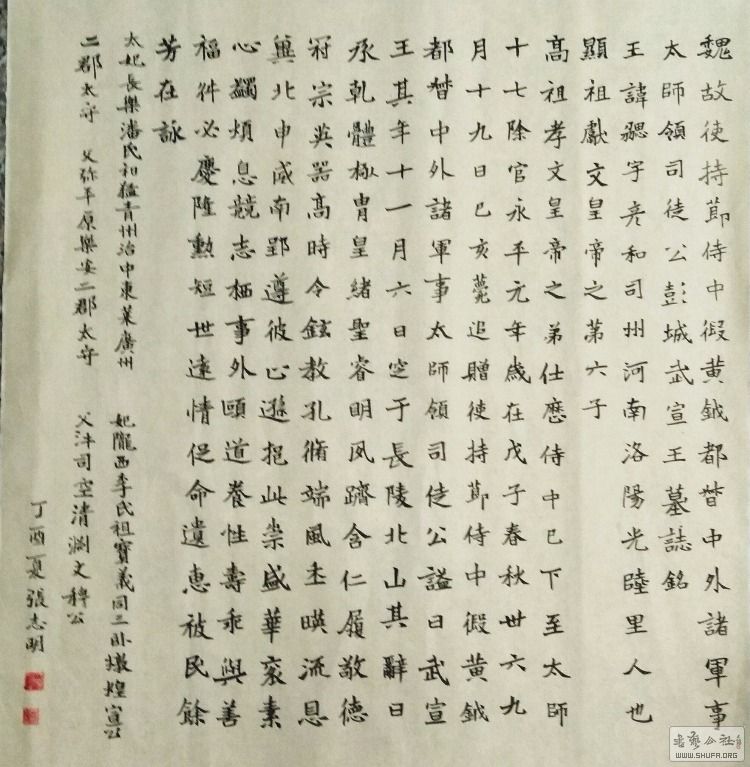 魏故使持節侍中假黄鉞都督中外諸軍事
太師領司徒公彭城武宣王墓誌銘
王諱勰字彦和司州河南洛陽光睦里人也
顯祖獻文皇帝之第六子
髙祖孝文皇帝之弟仕歷侍中已下至太師
十七除官永平元年歳在戊子春秋卅六九
月十九日己亥薨追贈使持節侍中假黄鉞
都督中外諸軍事太師領司徒公謚曰武宣
王其年十一月六日窆于長陵北山其辭曰
承乾體極胄皇緒聖睿明夙躋含仁履敬德
冠宗英器髙時令鉉教孔脩端風丕暎流恩
冀北申威南郢遵彼止遜挹此崇盛華衮素
心蠲煩息競志栖事外頤道養性壽乖與善
福舛必慶隆勲短世遠情促命遺惠被民餘
芳在詠
太妃長樂潘氏祖猛青州治中東萊廣州
二郡太守 父弥平原樂安二郡太守
妃隴西李氏祖寳儀同三司燉煌宣公
父沖司空清淵文穆公
丁酉夏張志明
WWW.SHUFA.ORG